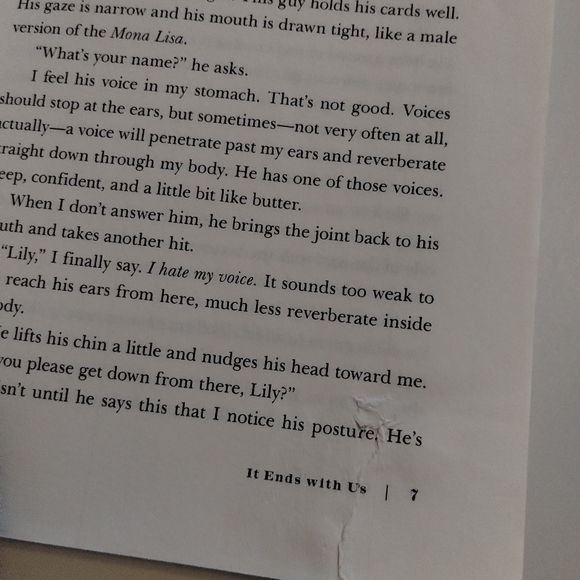 This guy holds his cards well.
His gaze is narrow and his mouth is drawn tight, like a male
version of the Mona Lisa.
“What’s your name?” he asks.
I feel his voice in my stomach. That’s not good. Voices
should stop at the ears, but sometimes—not very often at all,
actually—a voice will penetrate past my ears and reverberate
raight down through my body. He has one of those voices.
eep, confident, and a little bit like butter.
When I don’t answer him, he brings the joint back to his
uth and takes another hit.
“Lily,” I finally say. I hate my voice. It sounds too weak to
reach his ears from here, much less reverberate inside
ody.
e lifts his chin a little and nudges his head toward me.
you please get down from there, Lily?”
sn’t until he says this that I notice his posture. He’s
It Ends with Us | 7